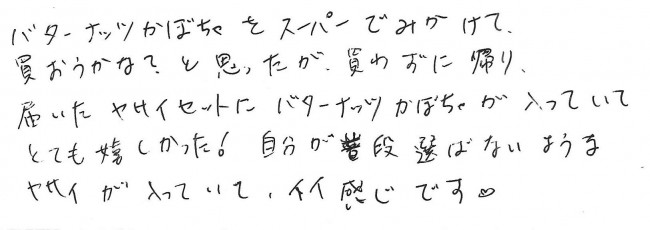 バターナッツかぼちゃをスーパーでみかけて、
買おうかな？と思ったが、買わずに帰り、
届いたヤサイセットにバターナッツかぼちゃが入っていて
とても嬉しかった！自分が普段選ばないような
ヤサイが入っていて、イイ感じです♡